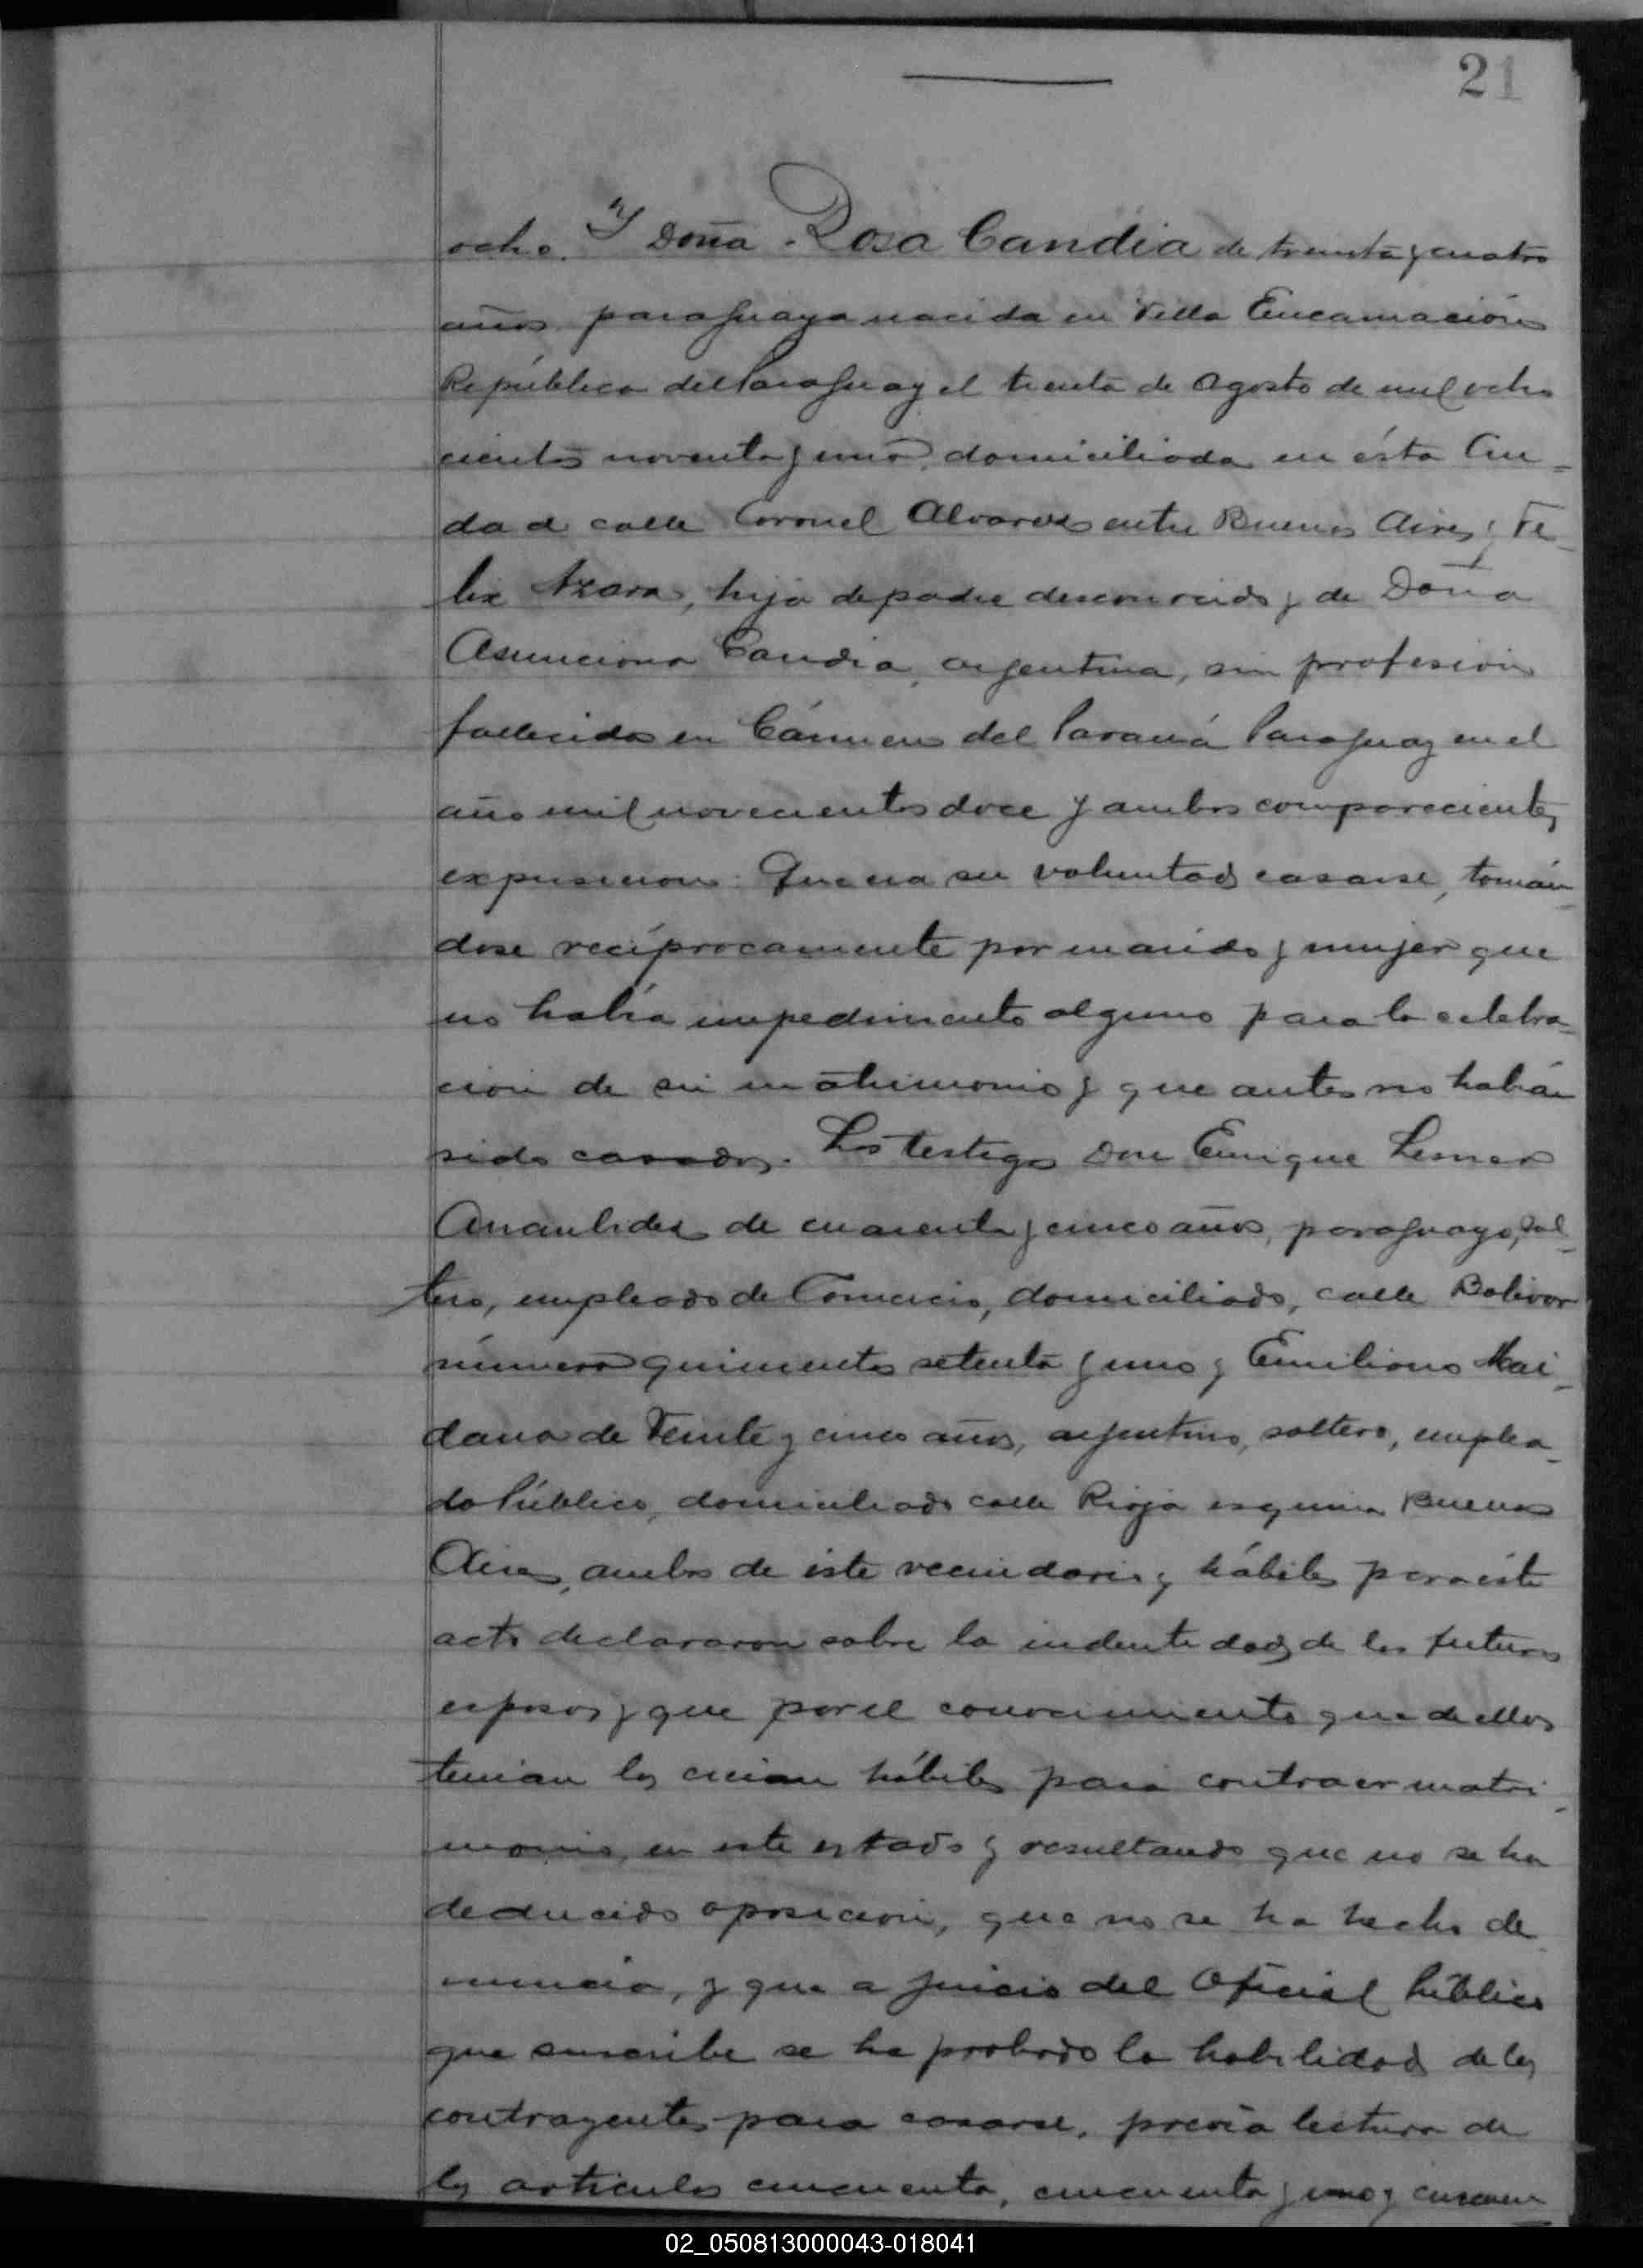 21
ocho. Y Doña Rosa Candia de treinta y cuatro
años paraguaya nacida en Villa Encarnación
República del Paraguay el treinta de Agosto de mil ocho
cientos noventa y uno, domiciliada en ésta Ciu-
dad calle Coronel Alvarez entre Buenos Aires y Fe-
lix Azara, hija de padre desconocido y de Doña
Asunciona Candia, argentina, sin profesión
fallecida en Cármen del Paraná Paraguay en el
año mil novecientos doce y ambos comparecientes
expusieron: Que era su voluntad casarse, tomán-
dose recíprocamente por marido y mujer que
no había impedimento alguno para la celebra-
ción de su matrimonio y que antes no habían
sido casados. Los testigos Don Enrique
de cuarenta y cinco años, paraguayo, sol-
tero, empleado de Comercio, domiciliado, calle Bolivar
número quinientos setenta y uno y Emiliano Mai-
dana de veinte y cinco años, argentino, soltero, emplea-
do Público, domiciliado calle Rioja esquina Buenos
Aires, ambos de este vecindario y hábiles para éste
acto declararon sobre la indentidad de los futuros
esposos y que por el conocimiento que de ellos
tenian los creian hábiles para contraer matri-
monio, en este estado y resultando que no se ha
deducido oposición, que no se ha hecho de
nuncia, y que a juicio del Oficial Público
que suscribe se ha probado la habilidad de los
contrayentes para casarse, previa lectura de
los artículos cincuenta, cincuenta y uno y
02_050813000043-018041